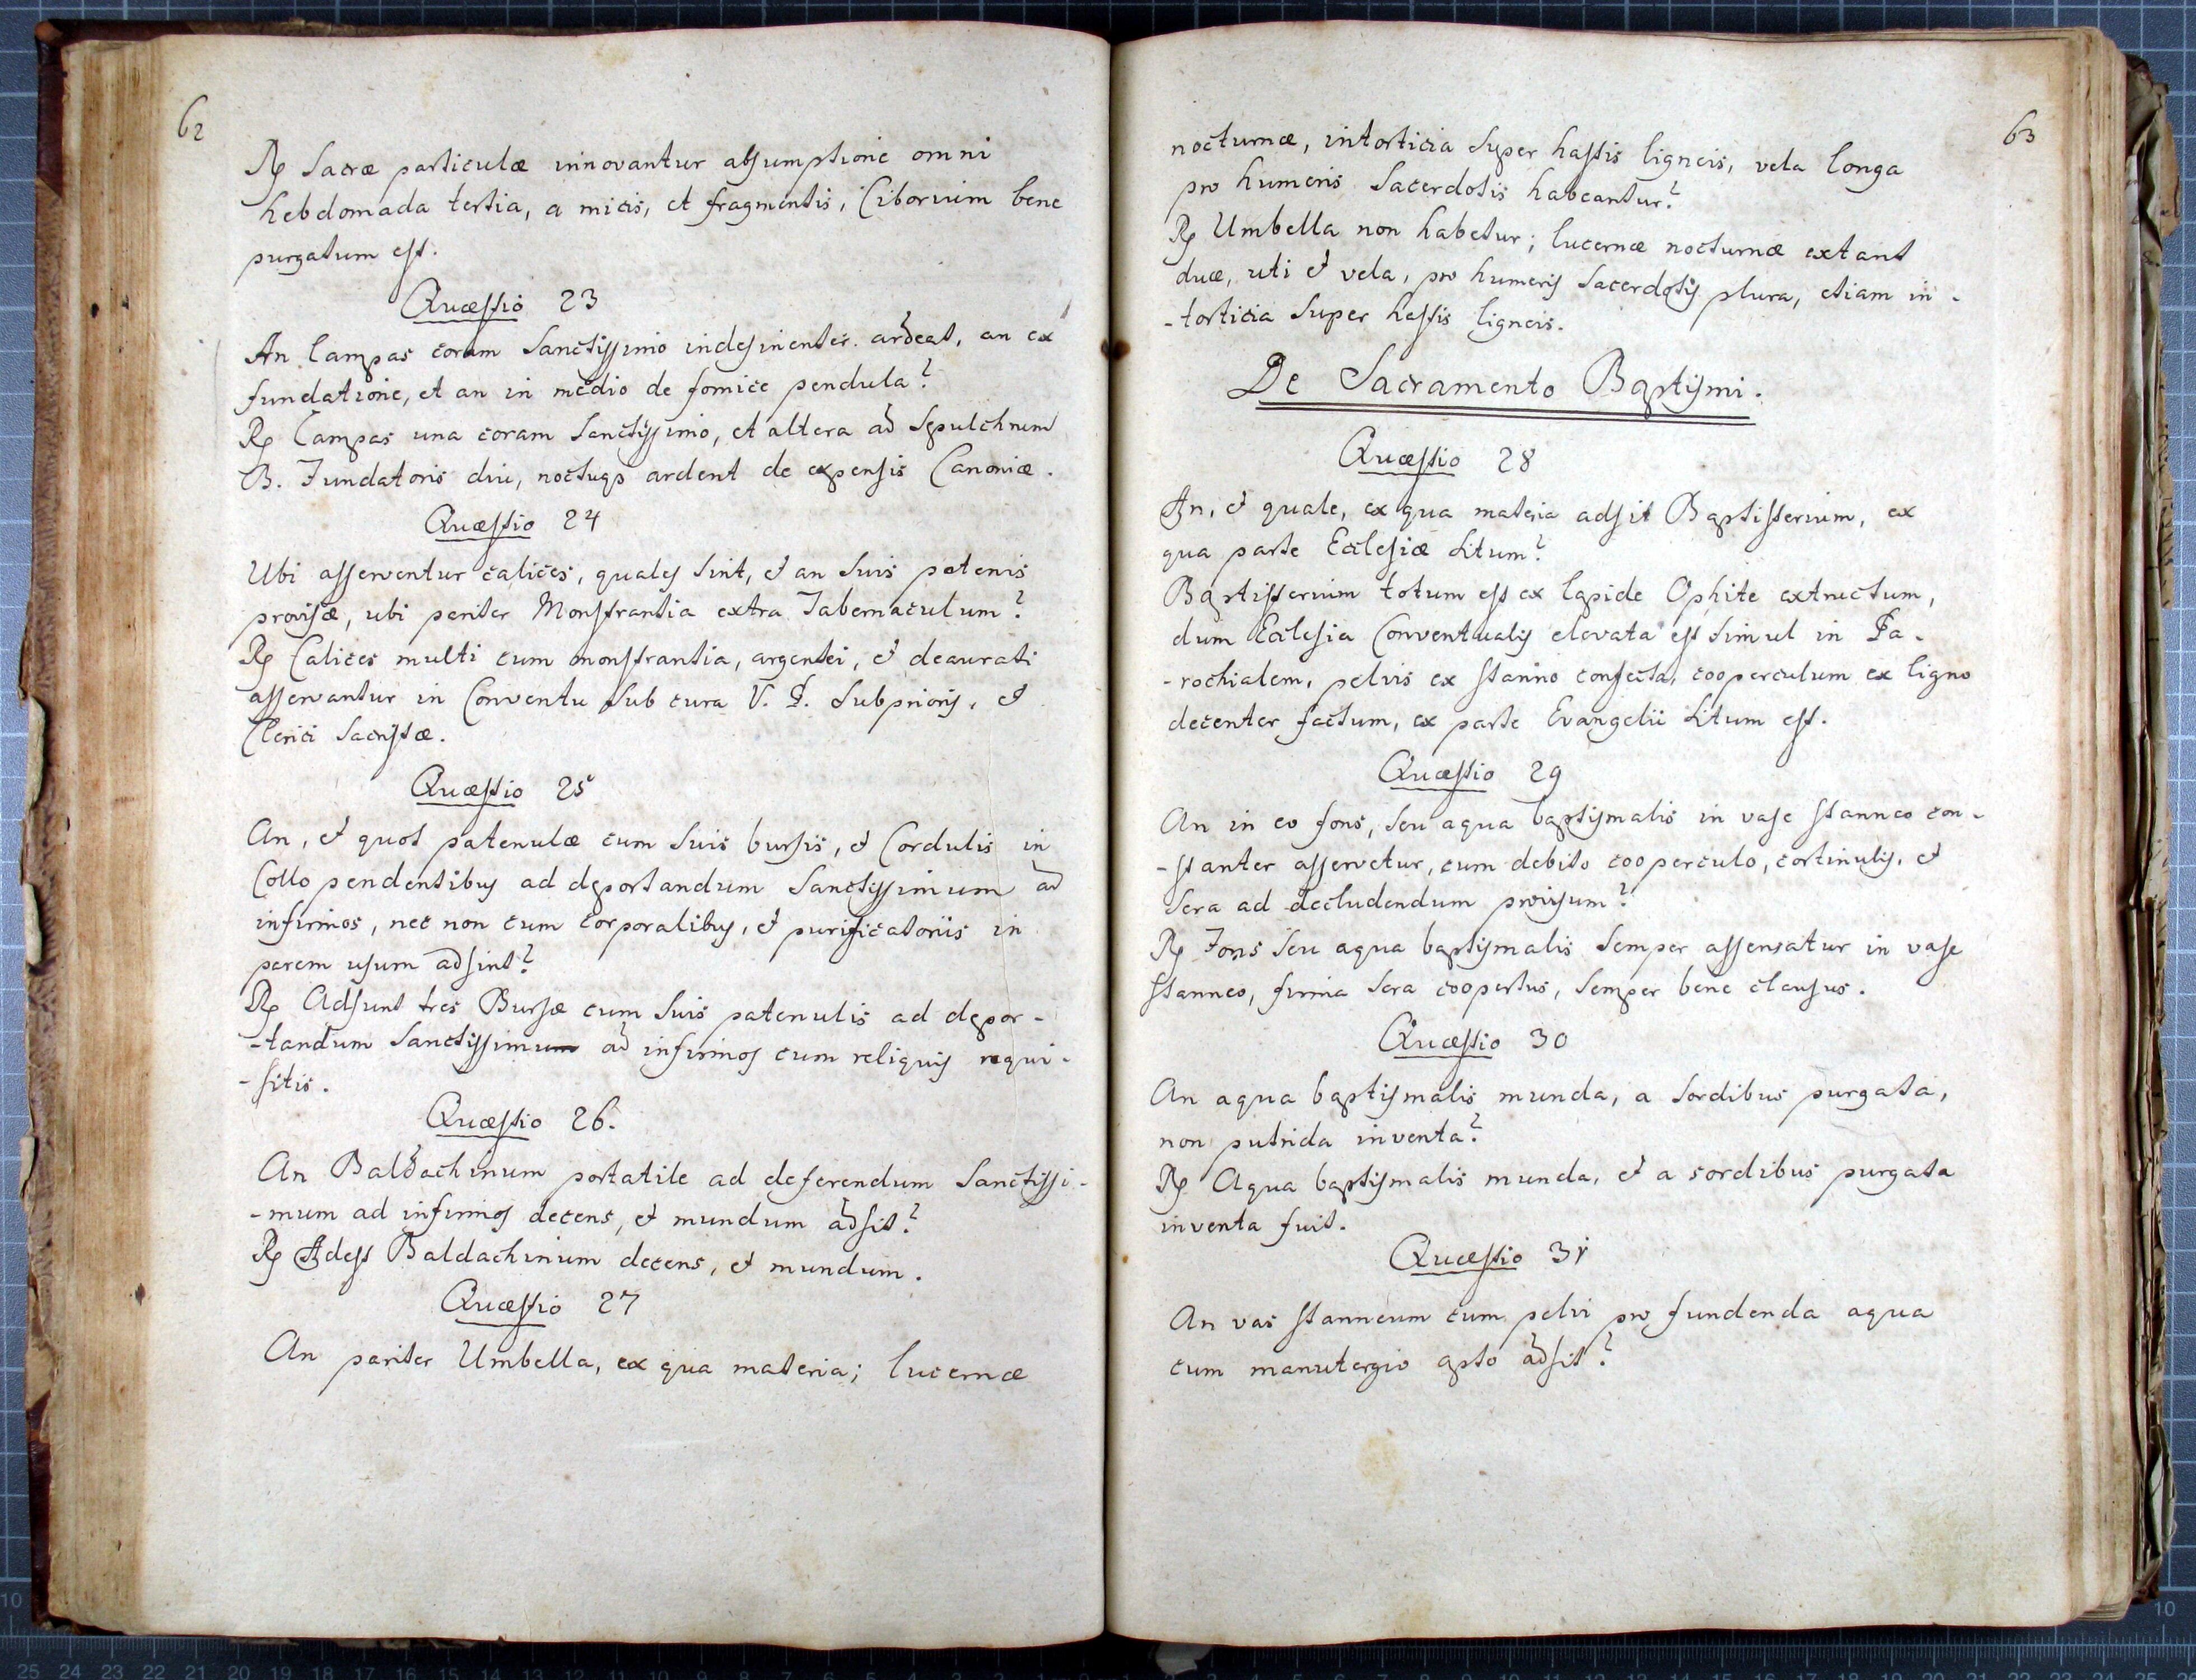 62
℞ Sacræ particulæ innovantur assumptione omni
hebdomada tertia, a micis, et fragmentis, Ciborium bene
purgatum est.
Quæstio 23
An lampas coram Sanctissimo indesinenter ardeat, an ex
fundatione, et an in medio de fornice pendula?
℞ Lampas una coram Sanctissimo, et altera ad Sepulchrum
B. Fundatoris diu, noctuqs ardent de expensis Canoniæ.
Quæstio 24
Ubi asserventur calices, quales sint, et an suis patenis
provisæ, ubi pariter Monstrantia extra Tabernaculum?
℞ Calices multi cum monstrantia, argentei, et deaurati
asservantur in Conventu sub cura V. P. Subprioris, et
Clerici Sacristæ.
Quæstio 25
An, et quot patenulæ cum suis bursis, et Cordulis in
Collo pendentibus ad deportandum Sanctissimum ad
infirmos, nec non cum corporalibus, et purificatoriis in
parem usum adsint?
℞ Adsunt tres Bursæ cum suis patenulis ad depor-
-tandum Sanctissimum ad infirmos cum reliquis requi-
-sitis.
Quæstio 26.
An Baldachinum portatile ad deferendum Sanctissi-
-mum ad infirmos decens, et mundum adsit?
℞ Adest Baldachinum decens, et mundum.
Quæstio 27
An pariter Umbella, ex qua materia; lucernæ
63
nocturnæ, intorticia super hastis ligneis, vela longa
pro humeris Sacerdotis habeantur?
℞ Umbella non habetur; lucernæ nocturnæ extant
duæ, uti et vela, pro humeris Sacerdotis plura, etiam in-
-torticia super hastis ligneis.
De Sacramento Baptismi.
Quæstio 28
An, et quale, ex qua materia adsit Baptisterium, ex
qua parte Ecclesiæ situm?
Baptisterium totum est ex lapide Ophite extructum,
dum Ecclesia Conventualis elevata est simul in Pa-
-rochialem, pelvis ex stanno confecta, cooperculum ex ligno
decenter factum, ex parte Evangelii situm est.
Quæstio 29
An in eo fons, seu aqua baptismalis in vase stanneo con-
-stanter asservetur, cum debito cooperculo, cortinulis, et
sera ad decludendum provisum?
℞ Fons seu aqua baptismalis semper asservatur in vase
stanneo, firma sera coopertus, semper bene clausus.
Quæstio 30
An aqua baptismalis munda, a sordibus purgata,
non putrida inventa?
℞ Aqua baptismalis munda, et a sordibus purgata
inventa fuit.
Quæstio 31
An vas stanneum cum pelvi pro fundenda aqua
cum manutergio apto adsit?